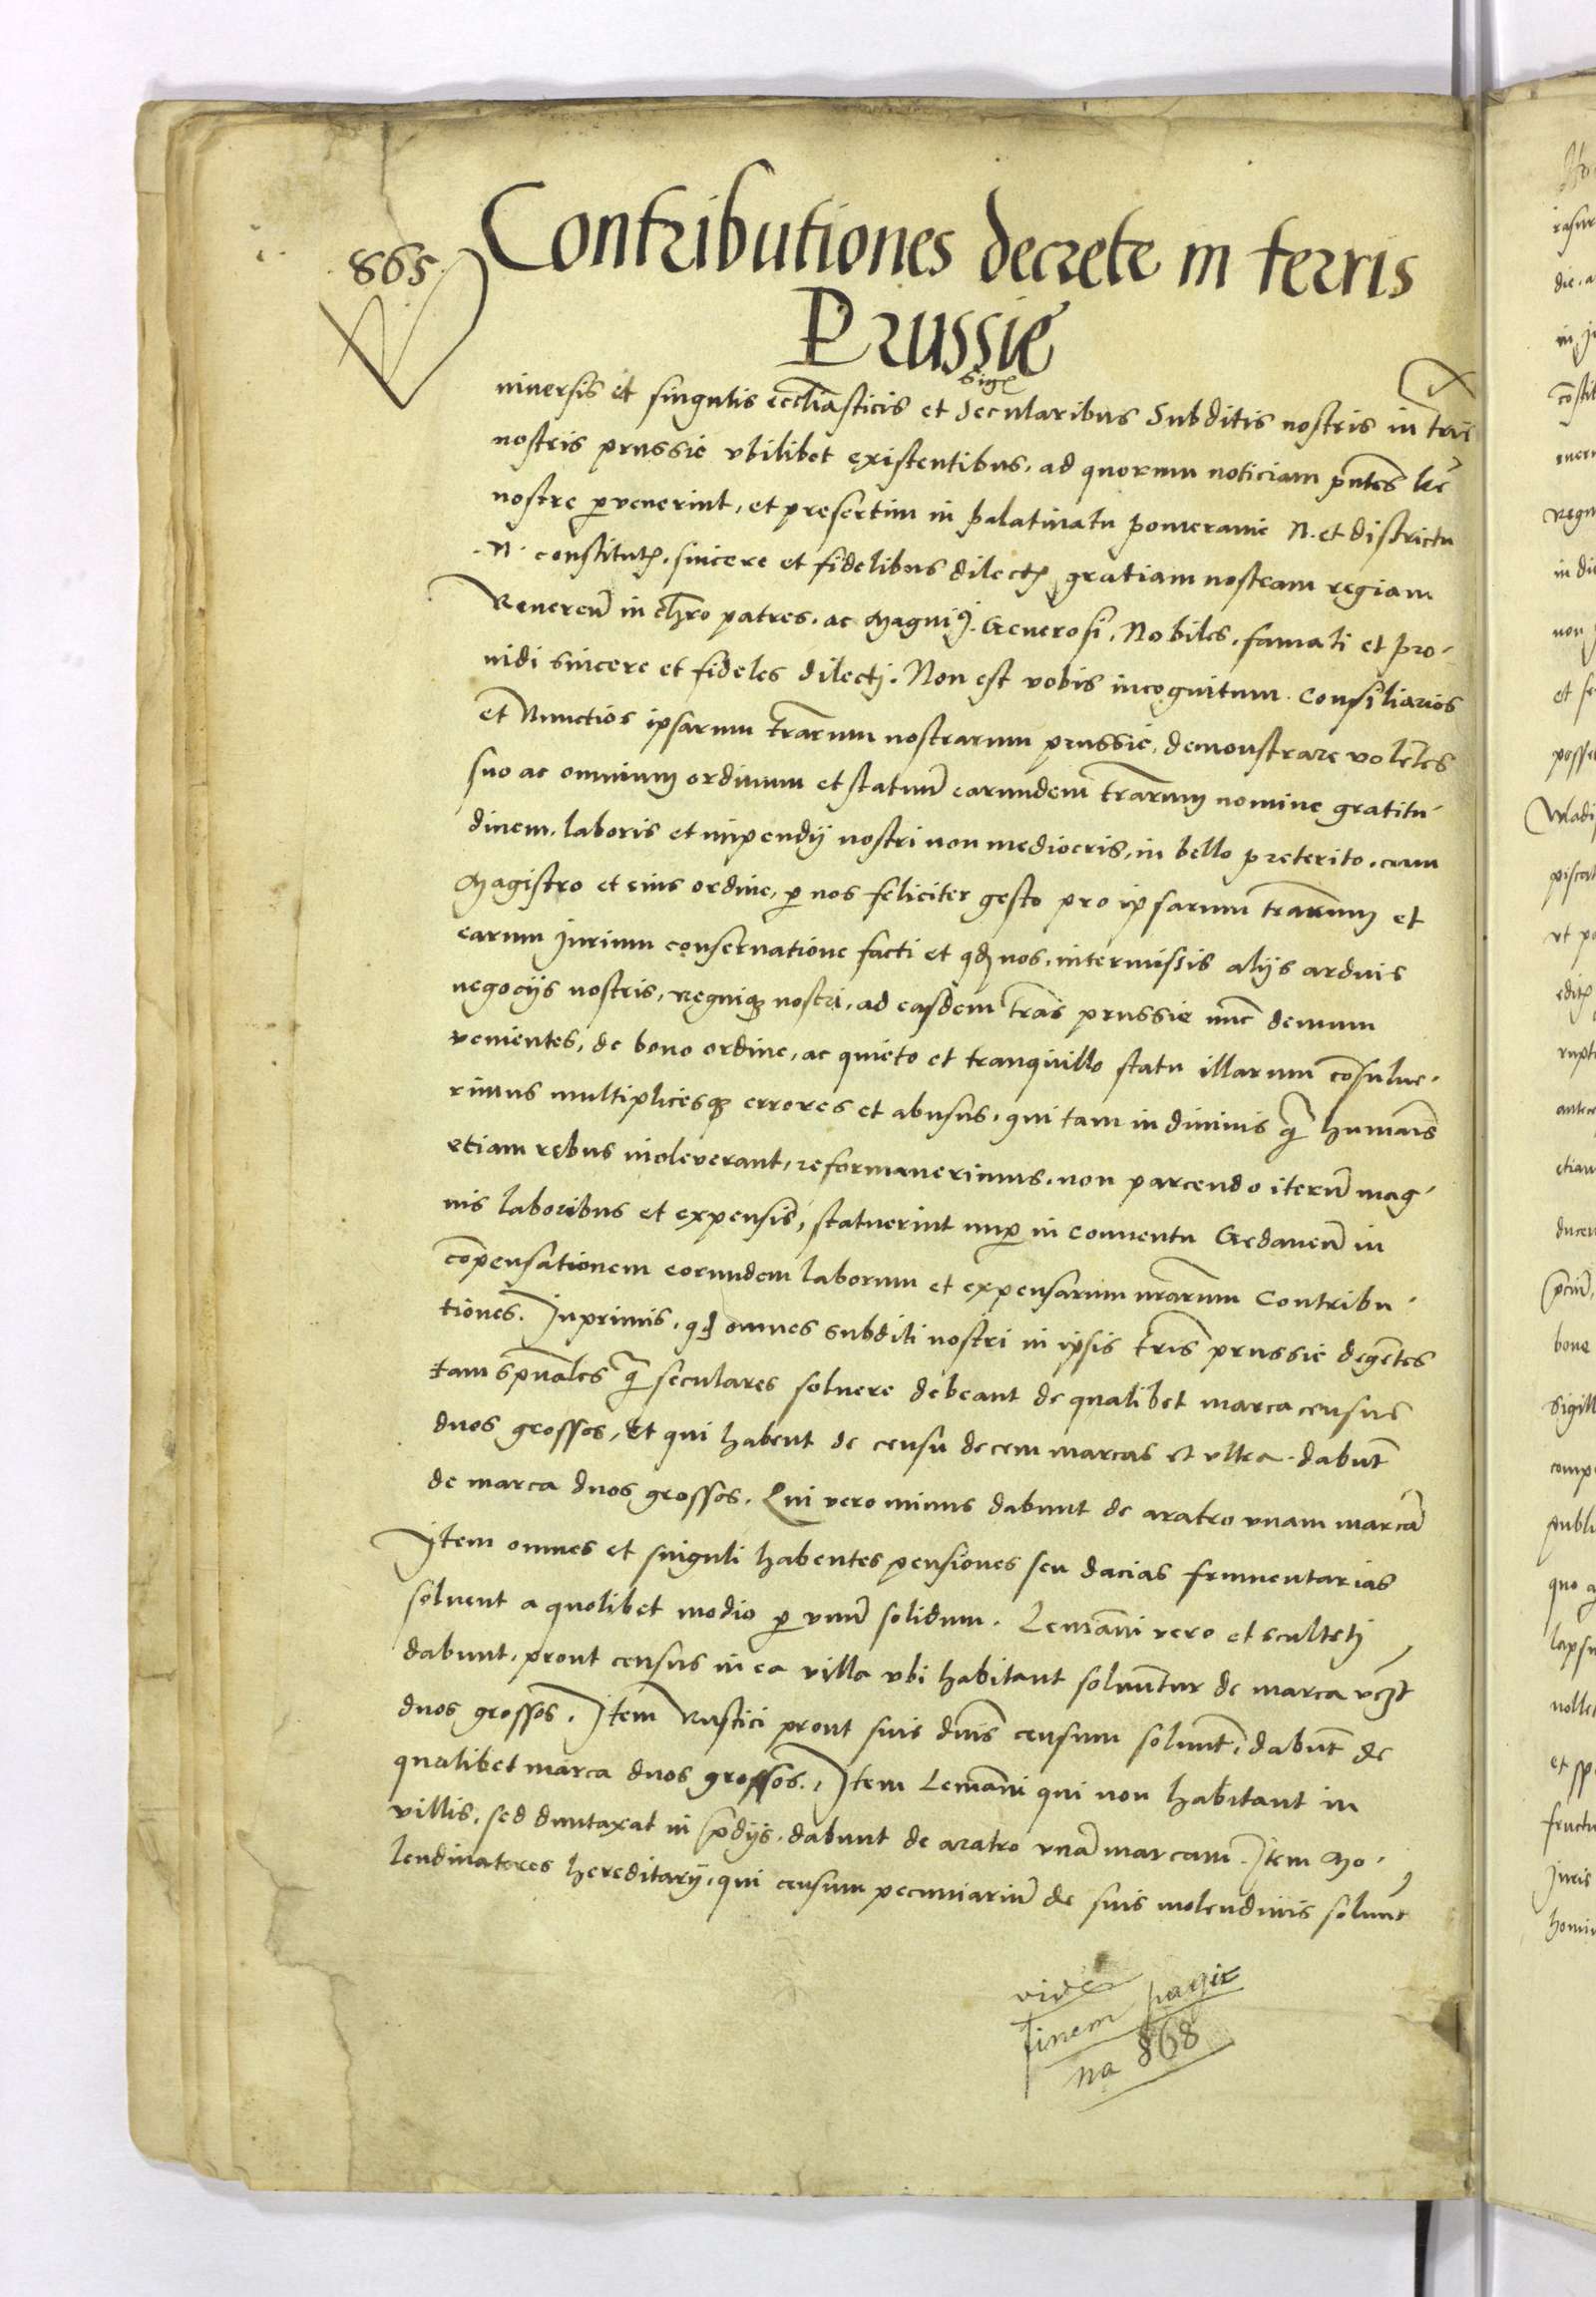 865
Contributiones decrete in terris
Prussie
Sigꝫ
niversis et singulis eccliasticis et Secularibus Subditis nostris in tris
nostris prussie vbilibet existentibus, ad quorum noticiam pntes lre
nostre pvenerint, et presertim in palatinatu pomeranie N. et districtu
.N. constitutꝭ. sincere et fidelibus dilectꝭ gratiam nostram regiam
Reveren in chro patres. ac Magnici. Generosi. Nobiles. famati et pro-
vidi sincere et fideles dilecti. Non est vobis incognitum. Consiliarios
et Nunctios ipsarum trarum nostrarum prussie, demonstrare volẽtes
suo ac omnium ordinum et statuũ earundem trarum nomine gratitu-
dinem. laboris et impendij nostri non mediocris, in bello preterito. cum
Magistro et eius ordine, p nos feliciter gesto pro ipsarum trarum et
earum Jurium conservatione facti et qđ nos. intermissis alijs arduis
negocijs nostris, regniqꝫ nostri, ad easdem tras prussie nunc demum
venientes, de bono ordine, ac quieto et tranquillo statu illarum cõsulue-
rimus multiplicesqꝫ errores et abusus. qui tam in divinis q̃ humanis
etiam rebus inoleverant, reformaverimus. non parcendo iterũ mag-
nis laboribus et expensis, statuerint nup in Conventu Gedaneñ in
cõpensationem eorundem laborum et expensarum nrarum Contribu-
tiones. Inprimis. qđ omnes subditi nostri in ipsis tris prussie degẽtes
tam spũales q̃ seculares solvere debeant de qualibet marca census
duos grossos, Et qui habent de censu decem marcas et vltra. dabunt
de marca duos grossos. Qui vero minus dabunt de aratro vnam marcã
Item omnes et singuli habentes pensiones seu dacias frumentarias
solvent a quolibet modio p vnũ solidum. Lemãni vero et sculteti
dabunt, prout census in ea villa vbi habitant solvuntur de marca vcꝫt
duos grossos. Item Rustici prout suis dñis censum solvunt, dabunt de
qualibet marca duos grossos. Item Lemãni qui non habitant in
villis, sed duntaxat in p̃dijs. dabunt de aratro vnã marcam. Item Mo-
lendinatores hereditarij, qui censum pecuniariũ de suis molendinis solvunt
vide
finem pagi
na 868